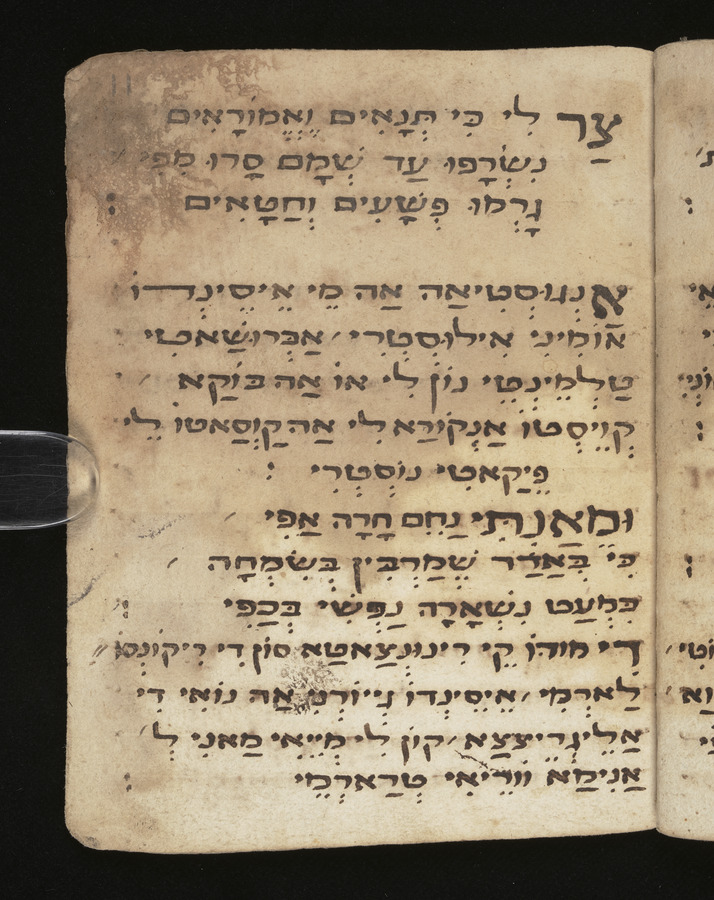 צַר לִי כִּי תְּנָאִים וְאֲמוֹרָאִים
נִשְׂרָפוּ עַד שְׁמָם סָרוּ מִפִּי
גָרְמוּ פְּשָׁעִים וְחַטָּאִים :
אַנְגוּסְטִיאַה אַה מֵי אֵיסֵינְדוֹ
אוֹמִינִי אִילוּסְטְרִי אַבְּרוּשַׁאטִי
טַלְמֵינְטֵי נוֹן לִי אוֹ אַה בּוֹקַא
קְוֵיסְטוֹ אַנְקוֹרַא לִי אַה קַוְסַאטוֹ לִי
פֵּיקַאטִי נוֹסְטְרִי :
וּמֵאֲנָתִי נַחֵם חָרָה אַפִּי
כִּי בְּאֲדָר שֶׁמַרְבִּין בְּשִׂמְחָה
כִּמְעַט נִשְׁאָרָה נַפְשִׁי בְּכַפִּי :
דִי מוֹדוֹ קֵי רִינוּנְצַאטַא סוֹן דִי רִיקוֹנְסוֹ
לַארְמִי אֵיסֵינְדוֹ גִיוֹרְנִי אַה נוֹאִי דִי
אַלֵיגְרֵיצַצַא קוֹן לִי מְיֵיאִי מַאנִי לְ
אַנִימַא ווֹרֵיאִי טְרַארְמֵי :